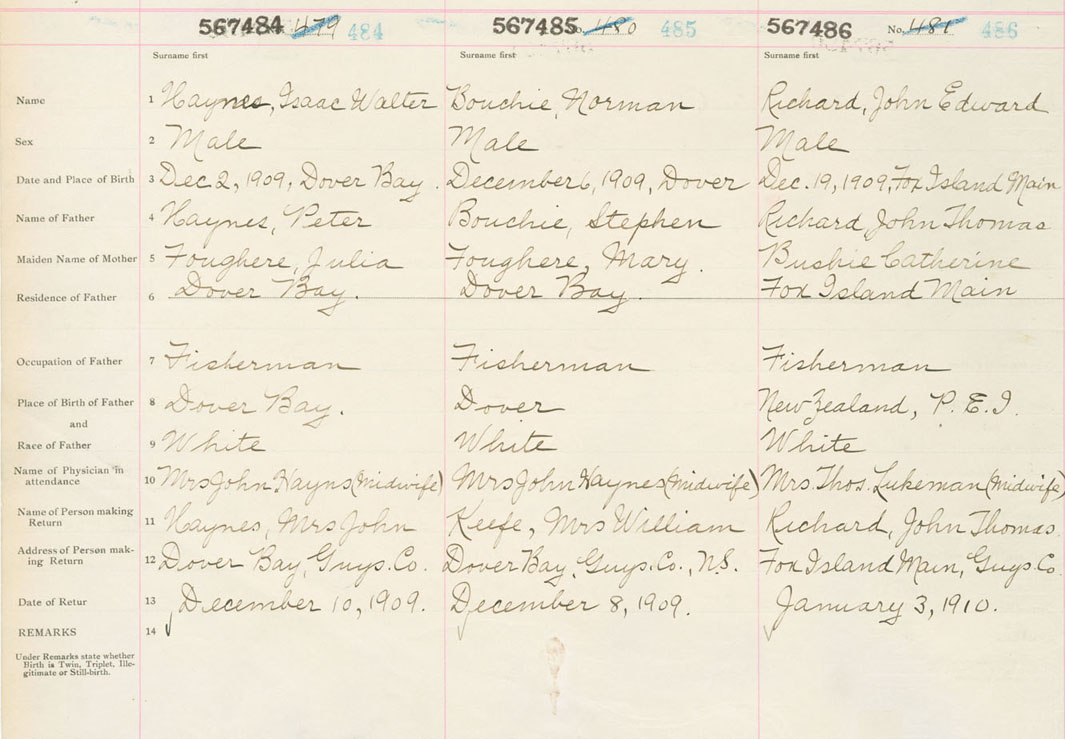 567484 479 484 567485 No. 480 485 567486 No. 481 486
Surname first Surname first Surname first
Name 1 Haynes, Isaac Walter Bouchie, Norman Richard, John Edward
Sex 2 Male Male Male
Date and Place of Birth 3 Dec 2, 1909, Dover Bay. December 6, 1909, Dover Dec. 19, 1909, Fox Island Main
Name of Father 4 Haynes, Peter Bouchie, Stephen Richard, John Thomas
Maiden Name of Mother 5 Foughere, Julia Foughere, Mary. Bushie Catherine
Residence of Father 6 Dover Bay. Dover Bay. Fox Island Main
Occupation of Father 7 Fisherman Fisherman Fisherman
Place of Birth of Father 8 Dover Bay. Dover New Zealand, P. E. I.
and
Race of Father 9 White White White
Name of Physician in
attendance 10 Mrs John Hayns (midwife) Mrs John Haynes (midwife) Mrs. Thos. Lukeman (midwife)
Name of Person making
Return 11 Haynes, Mrs John Keefe, Mrs William Richard, John Thomas.
Address of Person mak-
ing Return 12 Dover Bay, Guys. Co. Dover Bay, Guys. Co., N.S. Fox Island Main, Guys. Co.
Date of Retur 13 December 10, 1909. December 8, 1909. January 3, 1910.
REMARKS 14
Under Remarks state whether
Birth is Twin, Triplet, Ille-
gitimate or Still-birth.